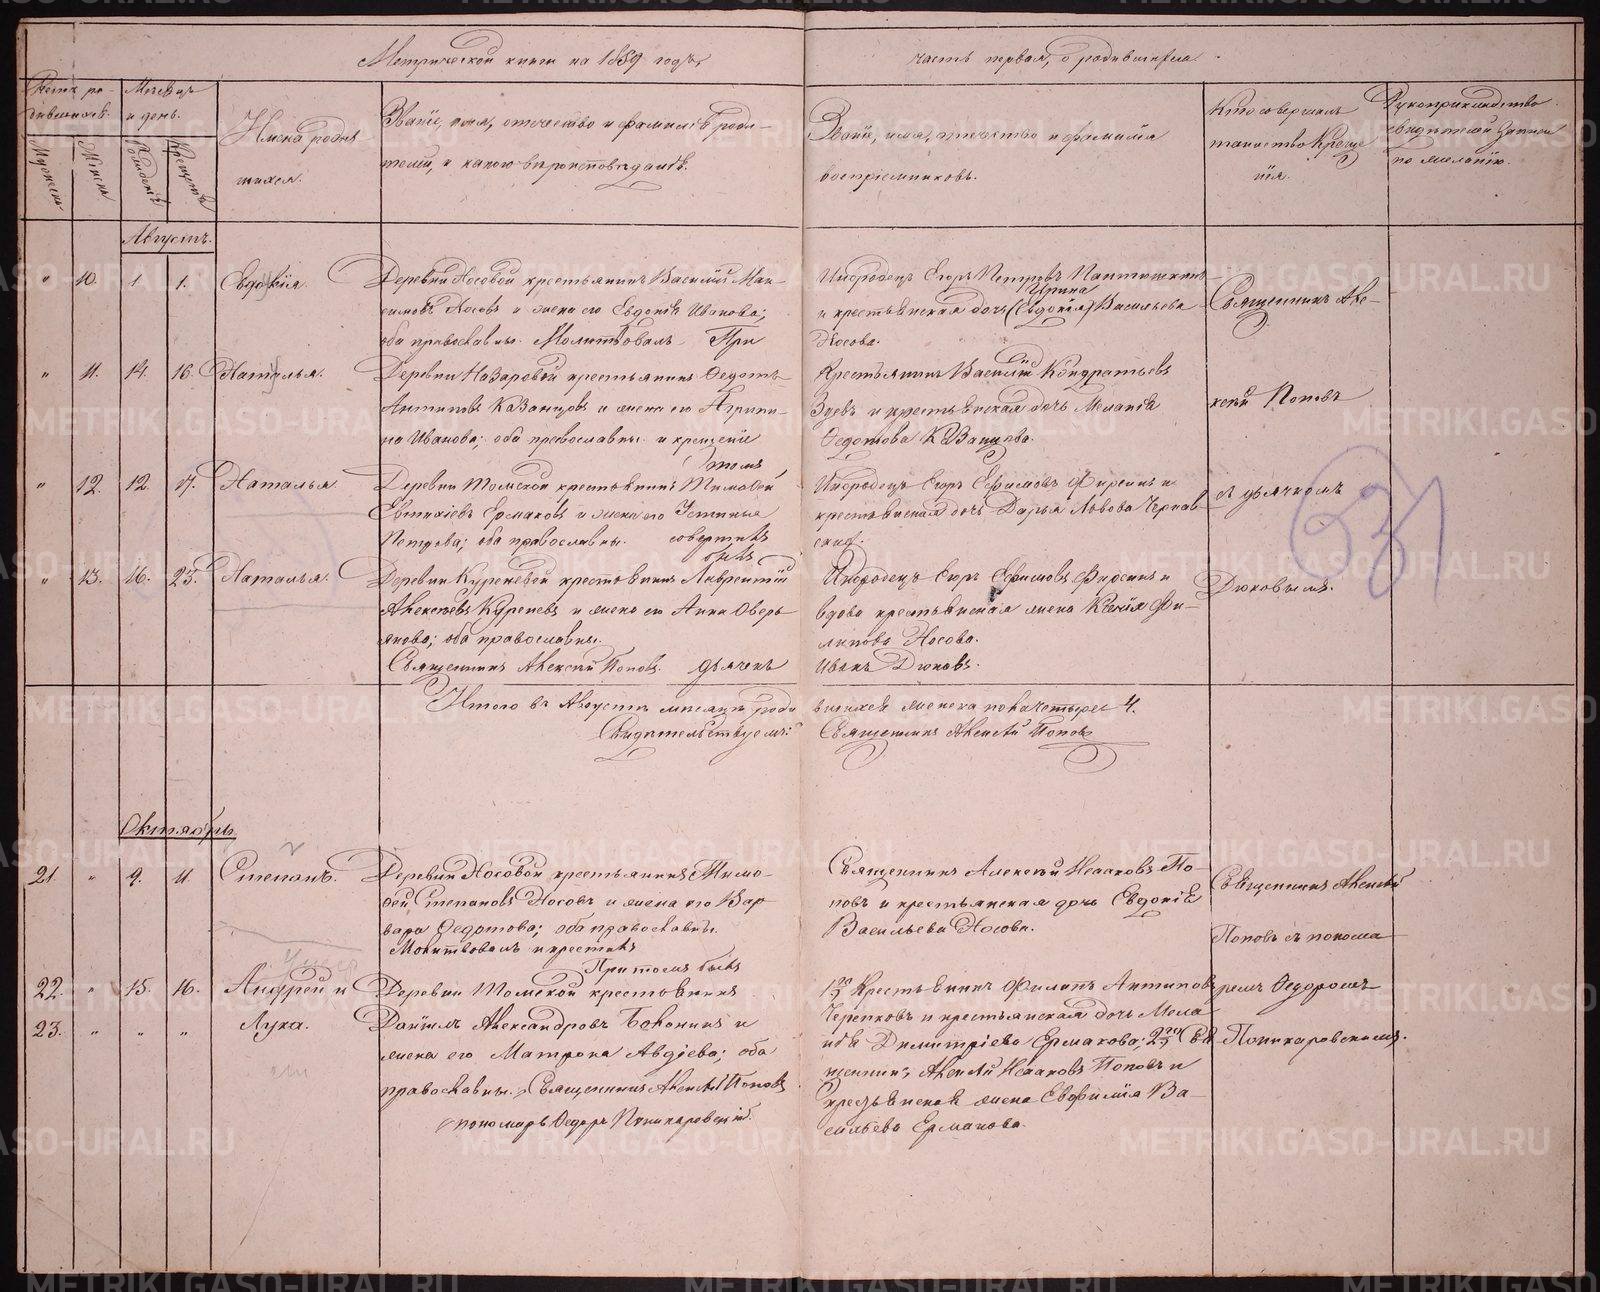 Метрической книги на 1889 годъ, часть первая, о родившихся.
Счетъ ро-
дившихся.
Мужеска
Женска
Мѣсяцъ
и день.
Рожденія
Крещенія
Имена родив
шихся.
Званіе, имя, отчество и фамилія роди-
телей, и какого вѣроисповѣданія.
Званіе, имя, отчество и фамилія
воспріемниковъ.
Кто совершалъ
таинство Креще
нія.
Рукоприкладство
свидѣтелей записи
по желанію.
Августъ.
" 10. 1. 1. Евдокія.
Деревни Носовой крестьянинъ Василій Мак-
симовъ Носовъ и жена его Евдокія Иванова;
оба православны. Молитвовалъ При
Инородецъ Егоръ Петровъ Пантюшкинъ
Ирина
и крестьянская дочь (Евдокія) Васильева
Носова.
Священникъ Але-
" 11. 14. 16. Наталья.
Деревни Назаровой крестьянинъ Федотъ
Антиповъ Казанцовъ и жена его Агрипи-
на Иванова; оба православны. и крещеніе
Крестьянинъ Василій Кондратьевъ
Зуевъ и крестьянская дочь Меланія
Федотова Казанцова.
ксѣй Поповъ
" 12. 12. 17. Наталья
томъ
Деревни Томской крестьянинъ Тимофей
Евтихіевъ Ермаковъ и жена его Устинья
Петрова; оба православны. совершилъ
Инородецъ Егоръ Ефимовъ Фирсинъ и
крестьянская дочь Дарья Львова Черняв
ская.
съ дьячкомъ
" 13. 16. 23. Наталья.
былъ
Деревни Куреневой крестьянинъ Лаврентій
Алексѣевъ Куреневъ и жена его Анна Аверь-
янова; оба православны.
Священникъ Алексѣй Поповъ. дьячекъ
Инородецъ Егоръ Ефимовъ Фирсинъ и
вдова крестьянская жена Ксенія Фи-
липова Носова.
Иванъ Дюковъ.
Дюковымъ.
Итого въ Августѣ мѣсяцѣ роди
вшихся женска пола четыре 4.
Свидѣтельствуемъ:
Священникъ Алексѣй Поповъ
Октябрь
21. " 9. 11. Степанъ.
Деревни Носовой крестьянинъ Тимо-
фей Степановъ Носовъ и жена его Вар-
вара Федотова; оба православны.
Молитвовалъ и крестилъ
Священникъ Алексѣй Исааковъ По-
повъ и крестьянская дочь Евдокія
Васильева Носова.
Священникъ Алексѣй
Поповъ съ понома
При томъ былъ
22. " 15. 16. Андрей и
23. " " " Лука.
Деревни Томской крестьянинъ
Даніилъ Александровъ Боконинъ и
жена его Матрона Авдіева; оба
православны. Священникъ Алексѣй Поповъ
пономарь Федоръ Поникаровскій.
1го Крестьянинъ Филипъ Антиповъ
Черепковъ и крестьянская дочь Мела
нія Димитріева Ермакова; 2го Свя
щенникъ Алексѣй Исааковъ Поповъ и
крестьянская жена Евфимія Ва-
сильева Ермакова.
ремъ Федоромъ
Поникаровскимъ.